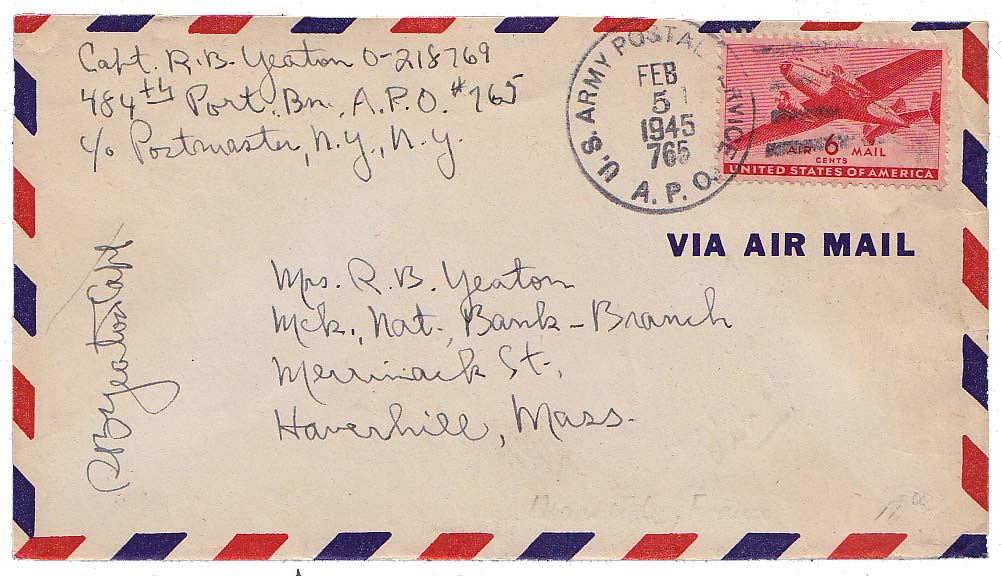 Capt. R.B. Yeaton O-218769
484th Port. Bn., A.P.O. #765
c/o Postmaster, N.Y., N.Y.
U.S. ARMY POSTAL SERVICE
FEB
5
1945
765
A.P.O.
AIR 6 MAIL
CENTS
UNITED STATES OF AMERICA
VIA AIR MAIL
Mrs. R.B. Yeaton
Mck. Nat. Bank-Branch
Merrimack St.,
Haverhill, Mass.
RB Yeaton Capt